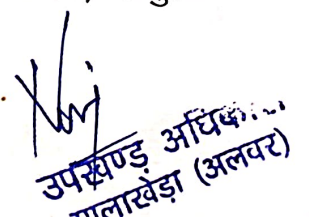 उपखण्ड अधिक....
मालाखेड़ा (अलवर)